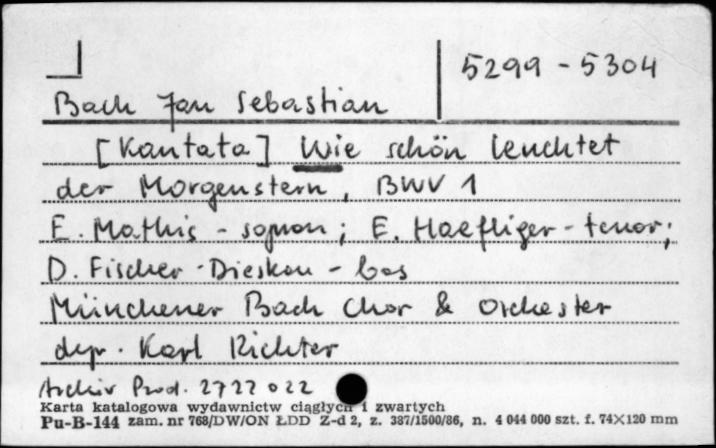 5299 - 5304
Bach Jan Sebastian
[Kantata] Wie schön leuchtet
der Morgenstern, BWV 1
E. Mathis - sopran ; E. Haefliger - tenor ;
D. Fischer-Dieskau - bas
Münchener Bach Chor & Orchester
dyr. Karl Richter
Archiv Prod. 2722 022
Karta katalogowa wydawnictw ciągłych i zwartych
Pu-B-144 zam. nr 768/DW/ON ŁDD Z-d 2, z. 387/1500/86, n. 4 044 000 szt. f. 74×120 mm